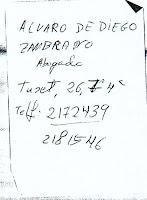 ALVARO DE DIEGO
ZAMBRANO
Abogado
Tuset, 26, 7º 4ª
Telf. 2172439
2181546